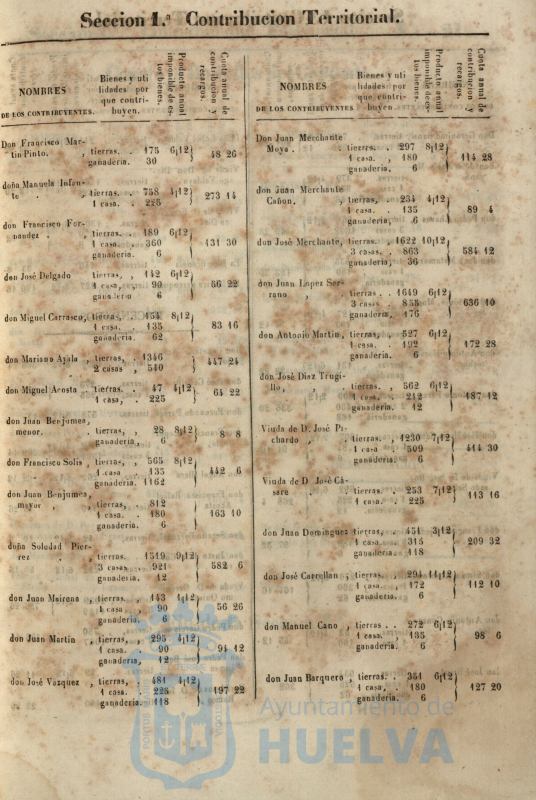 Seccion 1.ª Contribucion Territorial.
NOMBRES
DE LOS CONTRIBUYENTES.
Bienes y uti
lidades por
que contri-
buyen.
Producto anual
imponible de es-
tos bienes.
Cuota anual de
contribucion y
recargos.
Don Francisco Mar-
tin Pinto. . tierras. . 175 6|12
ganaderia. 30 } 48 26
doña Manuela Infan-
te , tierras. . 758 4|12
1 casa. 225 } 273 14
don Francisco Fer-
nandez , tierras. . 189 6|12
1 casa. . 360
ganaderia. 6 } 131 30
don José Delgado tierras, , 142 6|12
1 casa, 90
ganaderia 6 } 56 22
don Miguel Carrasco, tierras, . 154 8|12
1 casa. . 135
ganaderia. 62 } 83 16
don Mariano Ayala , tierras, 1346
2 casas , 540 } 447 24
don Miguel Acosta . tierras. . 47 4|12
1 casa, . 225 } 64 22
don Juan Benjumea,
menor. , tierras, , 28 8|12
ganaderia, 6 } 8 8
don Francisco Solis , tierras, . 565 8|12
1 casa 135
ganaderia. 1162 } 442 6
don Juan Benjumea,
mayor , , tierras, . 812
1 casa. . 180
ganaderia. 6 } 163 10
doña Soledad Pier-
rez , tierras. 1519 9|12
3 casas, 921
ganaderia. 12 } 582 6
don Juan Mairena , tierras, . 143 4|12
1 casa , 90
ganaderia. 6 } 56 26
don Juan Martin , tierras, , 295 4|12
1 casa. . 90
ganaderia, 12 } 94 12
don José Vazquez , tierras, . 481 4|12
1 casa. 225
ganaderia. 118 } 197 22
NOMBRES
DE LOS CONTRIBUYENTES.
Bienes y uti
lidades por
que contri-
buyen.
Producto anual
imponible de es-
tos bienes.
Cuota anual de
contribucion y
recargos.
Don Juan Merchante
Moya . . tierres. . 297 8|12
1 casa. , 180
ganaderia, 6 } 114 28
don Juan Merchante
Cañon. , tierras, . 234 4|12
1 casa. . 135
ganaderia, 6 } 89 4
don José Merchante, tierras. . 1622 10|12
3 casas. . 863
ganaderia, 36 } 584 12
don Juan Lopez Ser-
rano , tierras . . 1649 6|12
3 casas . 858
ganaderia, 176 } 636 10
don Antonio Martin, tierras, . 527 6|12
1 casa. . 192
ganaderia. 6 } 172 28
don José Diaz Trugi-
llo, . tierras. . 562 6|12
1 casa. . 212
ganaderia. 12 } 187 12
Viuda de D. José Pi-
chardo , , tierras, . 1230 7|12
1 casa . 509
ganaderia. 6 } 414 30
Viuda de D José Cá-
sare . . tierras. . 253 7|12
1 casa. . 225 } 113 16
don Juan Dominguez tierras, . 451 3|12
1 casa. . 315
ganaderia. 118 } 209 32
don José Carrellan , tierras, . 294 11|12
1 casa, . 172
ganaderia. 6 } 112 10
don Manuel Cano , tierras . . 272 6|12
1 casa. . 135
ganaderia. 6 } 98 6
don Juan Barquero , tierras. . 351 6|12
1 casa, . 180
ganaderia. 6 } 127 20
Ayuntamiento de
HUELVA